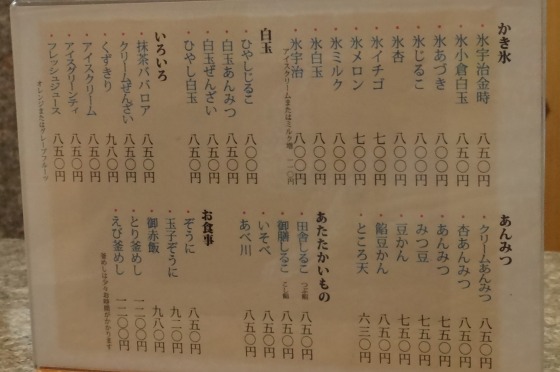 かき氷
・氷宇治金時 八五〇円
・氷小倉白玉 八五〇円
・氷あづき 八〇〇円
・氷じるこ 八〇〇円
・氷杏 八〇〇円
・氷イチゴ 七〇〇円
・氷メロン 七〇〇円
・氷ミルク 八〇〇円
・氷白玉 八〇〇円
・氷宇治 八〇〇円
アイスクリームまたはミルク増 一二〇円
白玉
・ひやしじるこ 八〇〇円
・白玉あんみつ 八五〇円
・白玉ぜんざい 八五〇円
・ひやし白玉 八五〇円
いろいろ
・抹茶ババロア 八五〇円
・クリームぜんざい 八五〇円
・くずきり 九八〇円
・アイスクリーム 八五〇円
・アイスクリンティ 八五〇円
・フレッシュジュース 八五〇円
オレンジまたはグレープフルーツ
あんみつ
・クリームあんみつ 八五〇円
・杏あんみつ 八五〇円
・あんみつ 七五〇円
・みつ豆 七五〇円
・豆かん 七五〇円
・餡豆かん 八五〇円
・ところ天 六三〇円
あたたかいもの
・田舎しるこ つぶ餡 八五〇円
・御膳しるこ こし餡 八五〇円
・いそべ 八五〇円
・あべ川 八五〇円
お食事
・ぞうに 八五〇円
・玉子ぞうに 九二〇円
・御赤飯 九八〇円
・とり釜めし 一二〇〇円
・えび釜めし 一二〇〇円
釜めしは少々お時間がかかります